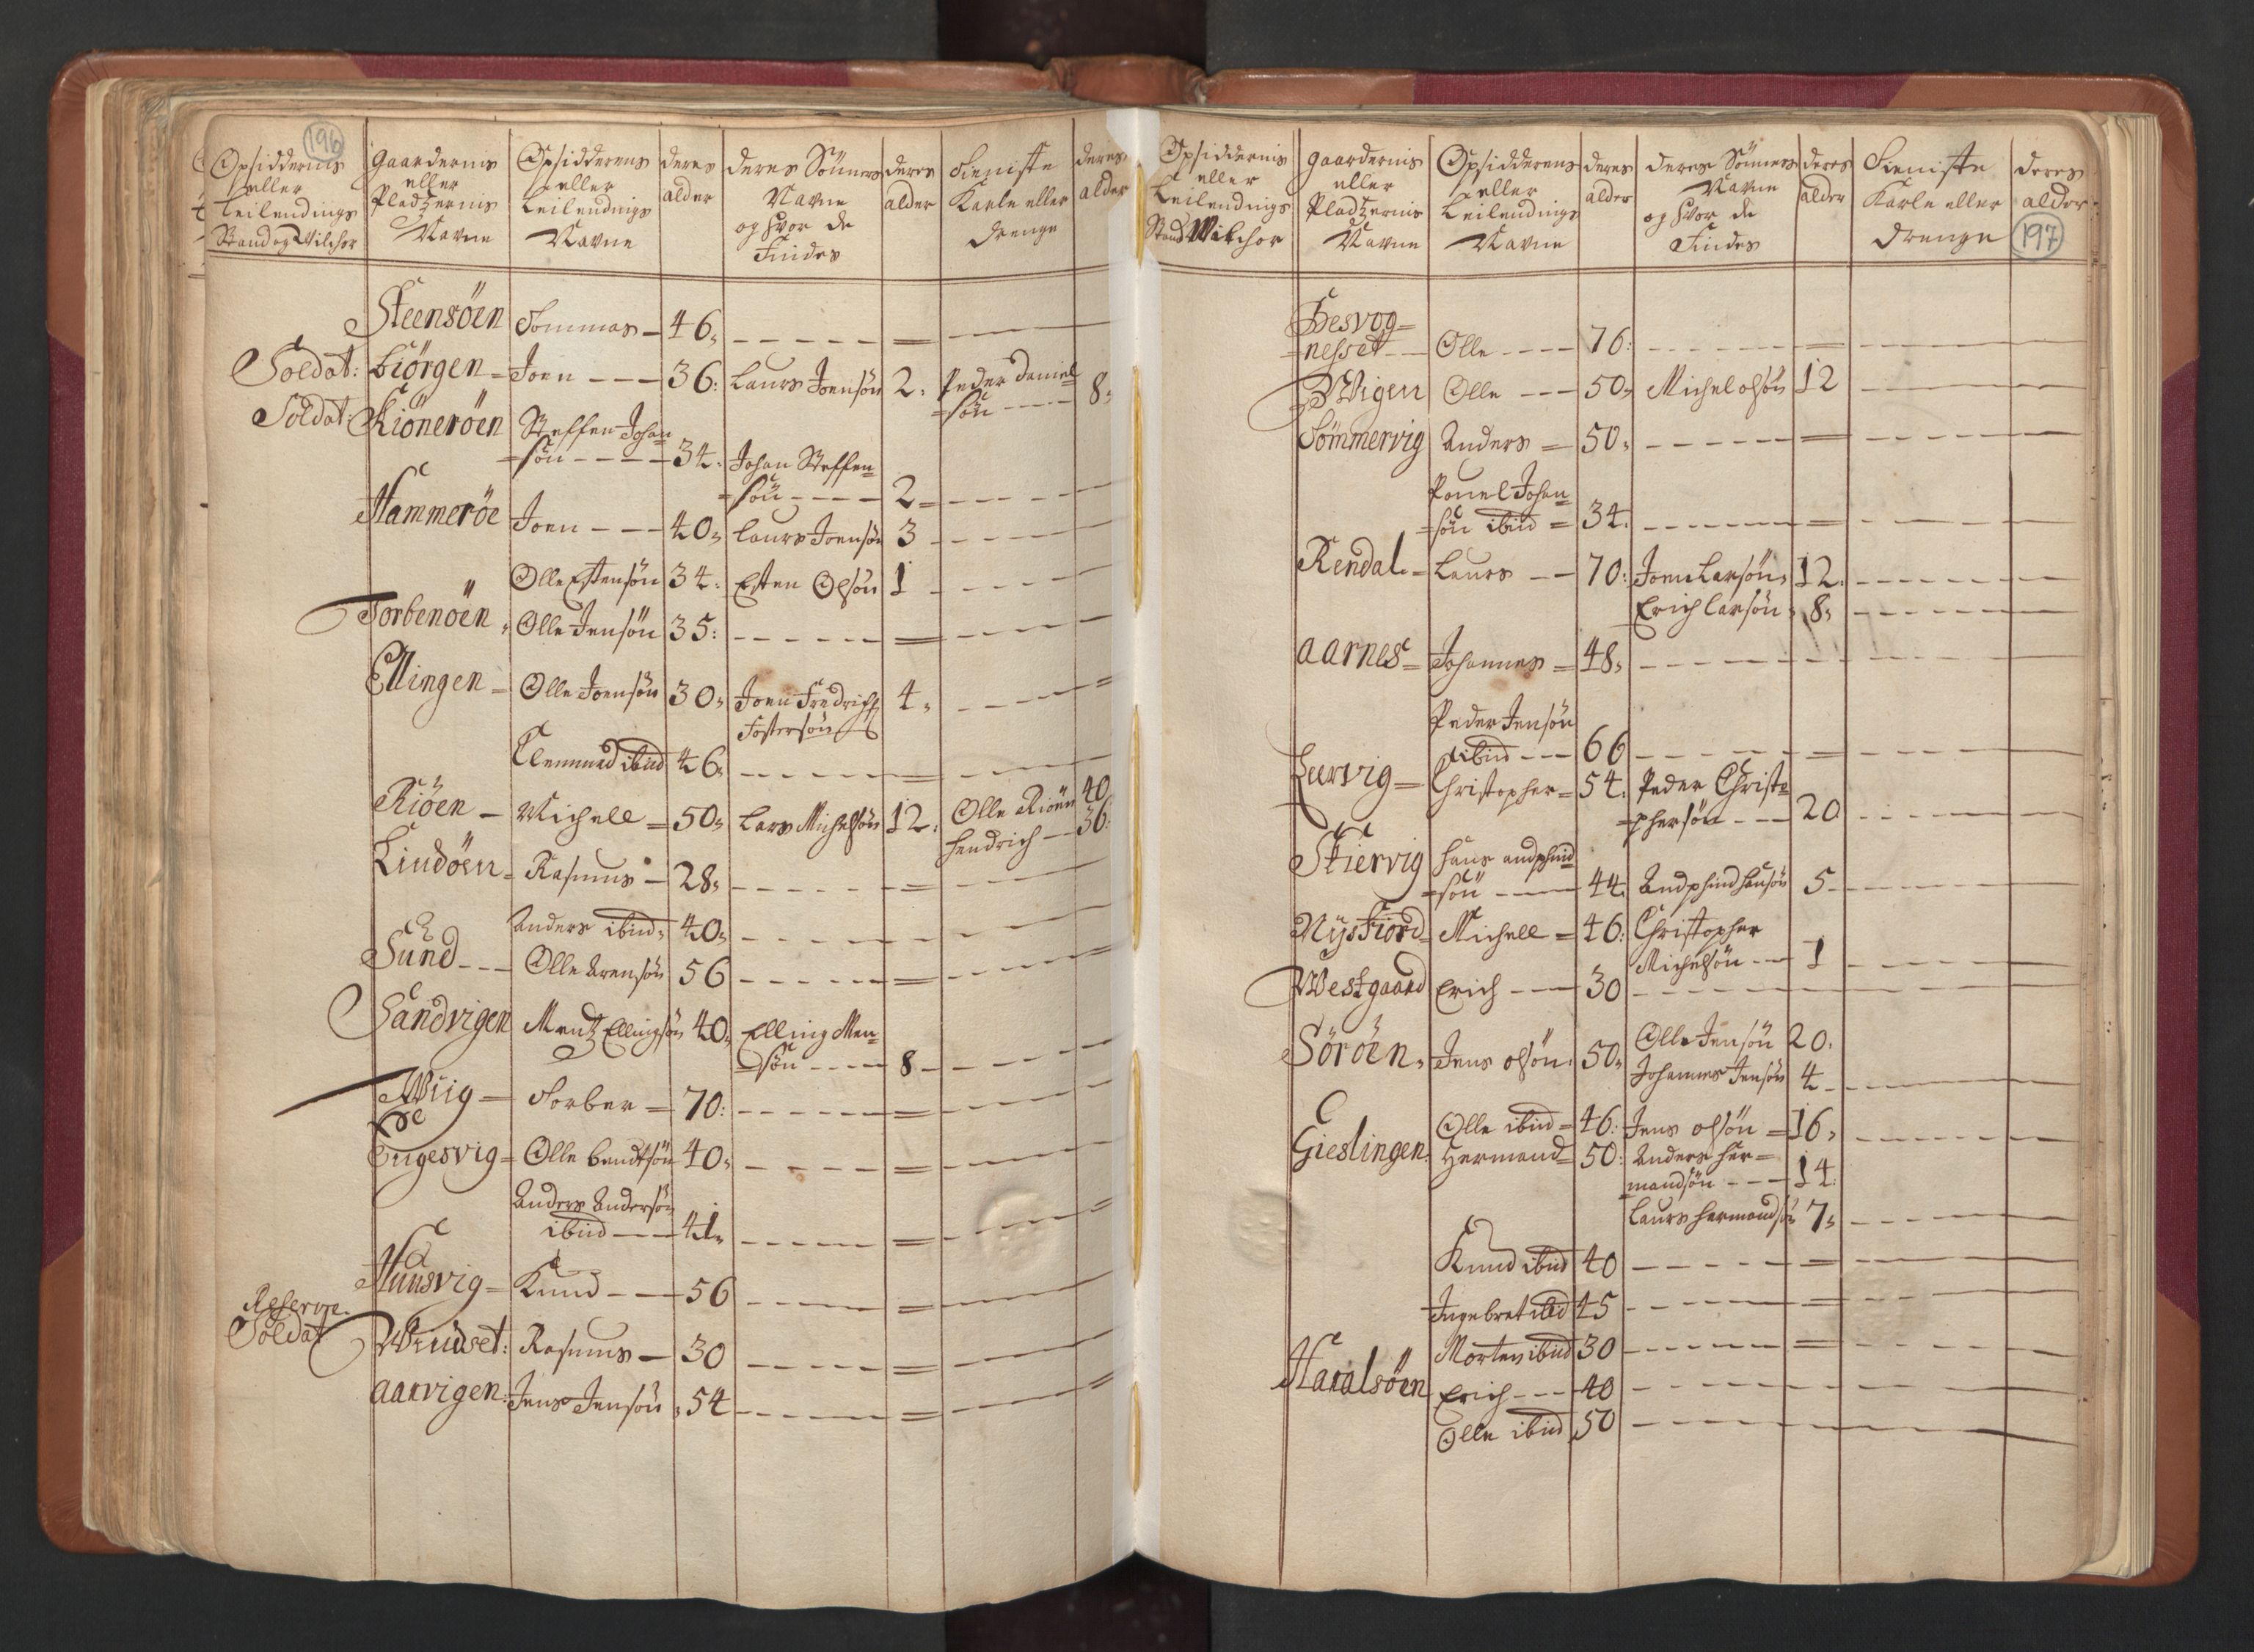 196
Opsiddernis eller Leilendings Stand og Vilchor
Gaardernis eller Pladzernis Navne
Opsidderens eller Leilendnigs Navne
deres alder
deres Sönners Navne og hvor de Findes
deres alder
Tieniste Karle eller drenge
deres alder
Steensöen Tommas - 46,
Soldat: biörgen = Joen --- 36: Laurs Joensön 2, Peder Daniel
=sön ---- 8,
Soldat: Kiöneröen Steffen Johan
=sön ---- 34: Johan Steffen
=sön ---- 2
Hammeröe Joen --- 40, Laurs Joensön 3
Olle Estensön 34: Esten Olsön 1
Torbenöen, Olle Jensön 35:
Ellingen = Olle Joensön 30, Joen Fredrichs 4,
Fostersön
Clemmed ibid 46,
Riöen - Michell = 50, Lars Michelsön 12: Olle Riöen 40
Hendrich - 36:
Lindöen = Rasmus - 28,
Anders ibid, 40,
Sund --- Olle Arensön 56
Sandvigen Mentz Ellingsön 40, Elling Men-
=sön ---- 8
Wiig = Torber = 70:
Engesvig = Olle bendtsön 40,
Anders Andersön
ibid --- 41,
Huusvig = Knud --- 56
Reserve
Soldat Windset: Rasmus - 30
aarvigen: Jens Jensön, 54
Opsiddernis eller Leilendnigs Stand Vilchor
gaardernis eller Pladzernis Navne
Opsidderens eller Leilendings Navne
deres alder
deres Sönners Navne og hvor de Findes
deres alder
Tieniste Karle eller drenge
deres alder
197
Besvog=
=nesset -- Olle ---- 76:
Wigen Olle --- 50, Michel olsön 12
Sömmervig Anders = 50,
Pouel Johan
=sön ibid = 34:
Rendal = Laurs -- 70: Joen Larsön, 12:
Erich Larsön, 8,
aarnes = Johannes = 48,
Peder Jensön
ibid --- 66
Leervig = Christopher = 54: Peder Christo
=phersön --- 20
Stiervig Hans andphind
=sön ---- 44: Andphind Hansön 5
Nÿsfiord = Michell = 46: Christopher
Michelsön -- 1
Westgaard Erich --- 30
Söröen, Jens olsön: 50, Olle Jensön 20:
Johannes Jensön 4
Olle ibid = 46: Jens olsön = 16,
Gieslingen: Hermand = 50: Anders Her=
=mandsön --- 14:
Laurs Hermandsön 7,
Knud ibid 40
Ingebret ibid 45
Morten ibid 30
Haralsöen Erich --- 40
Olle ibid 50